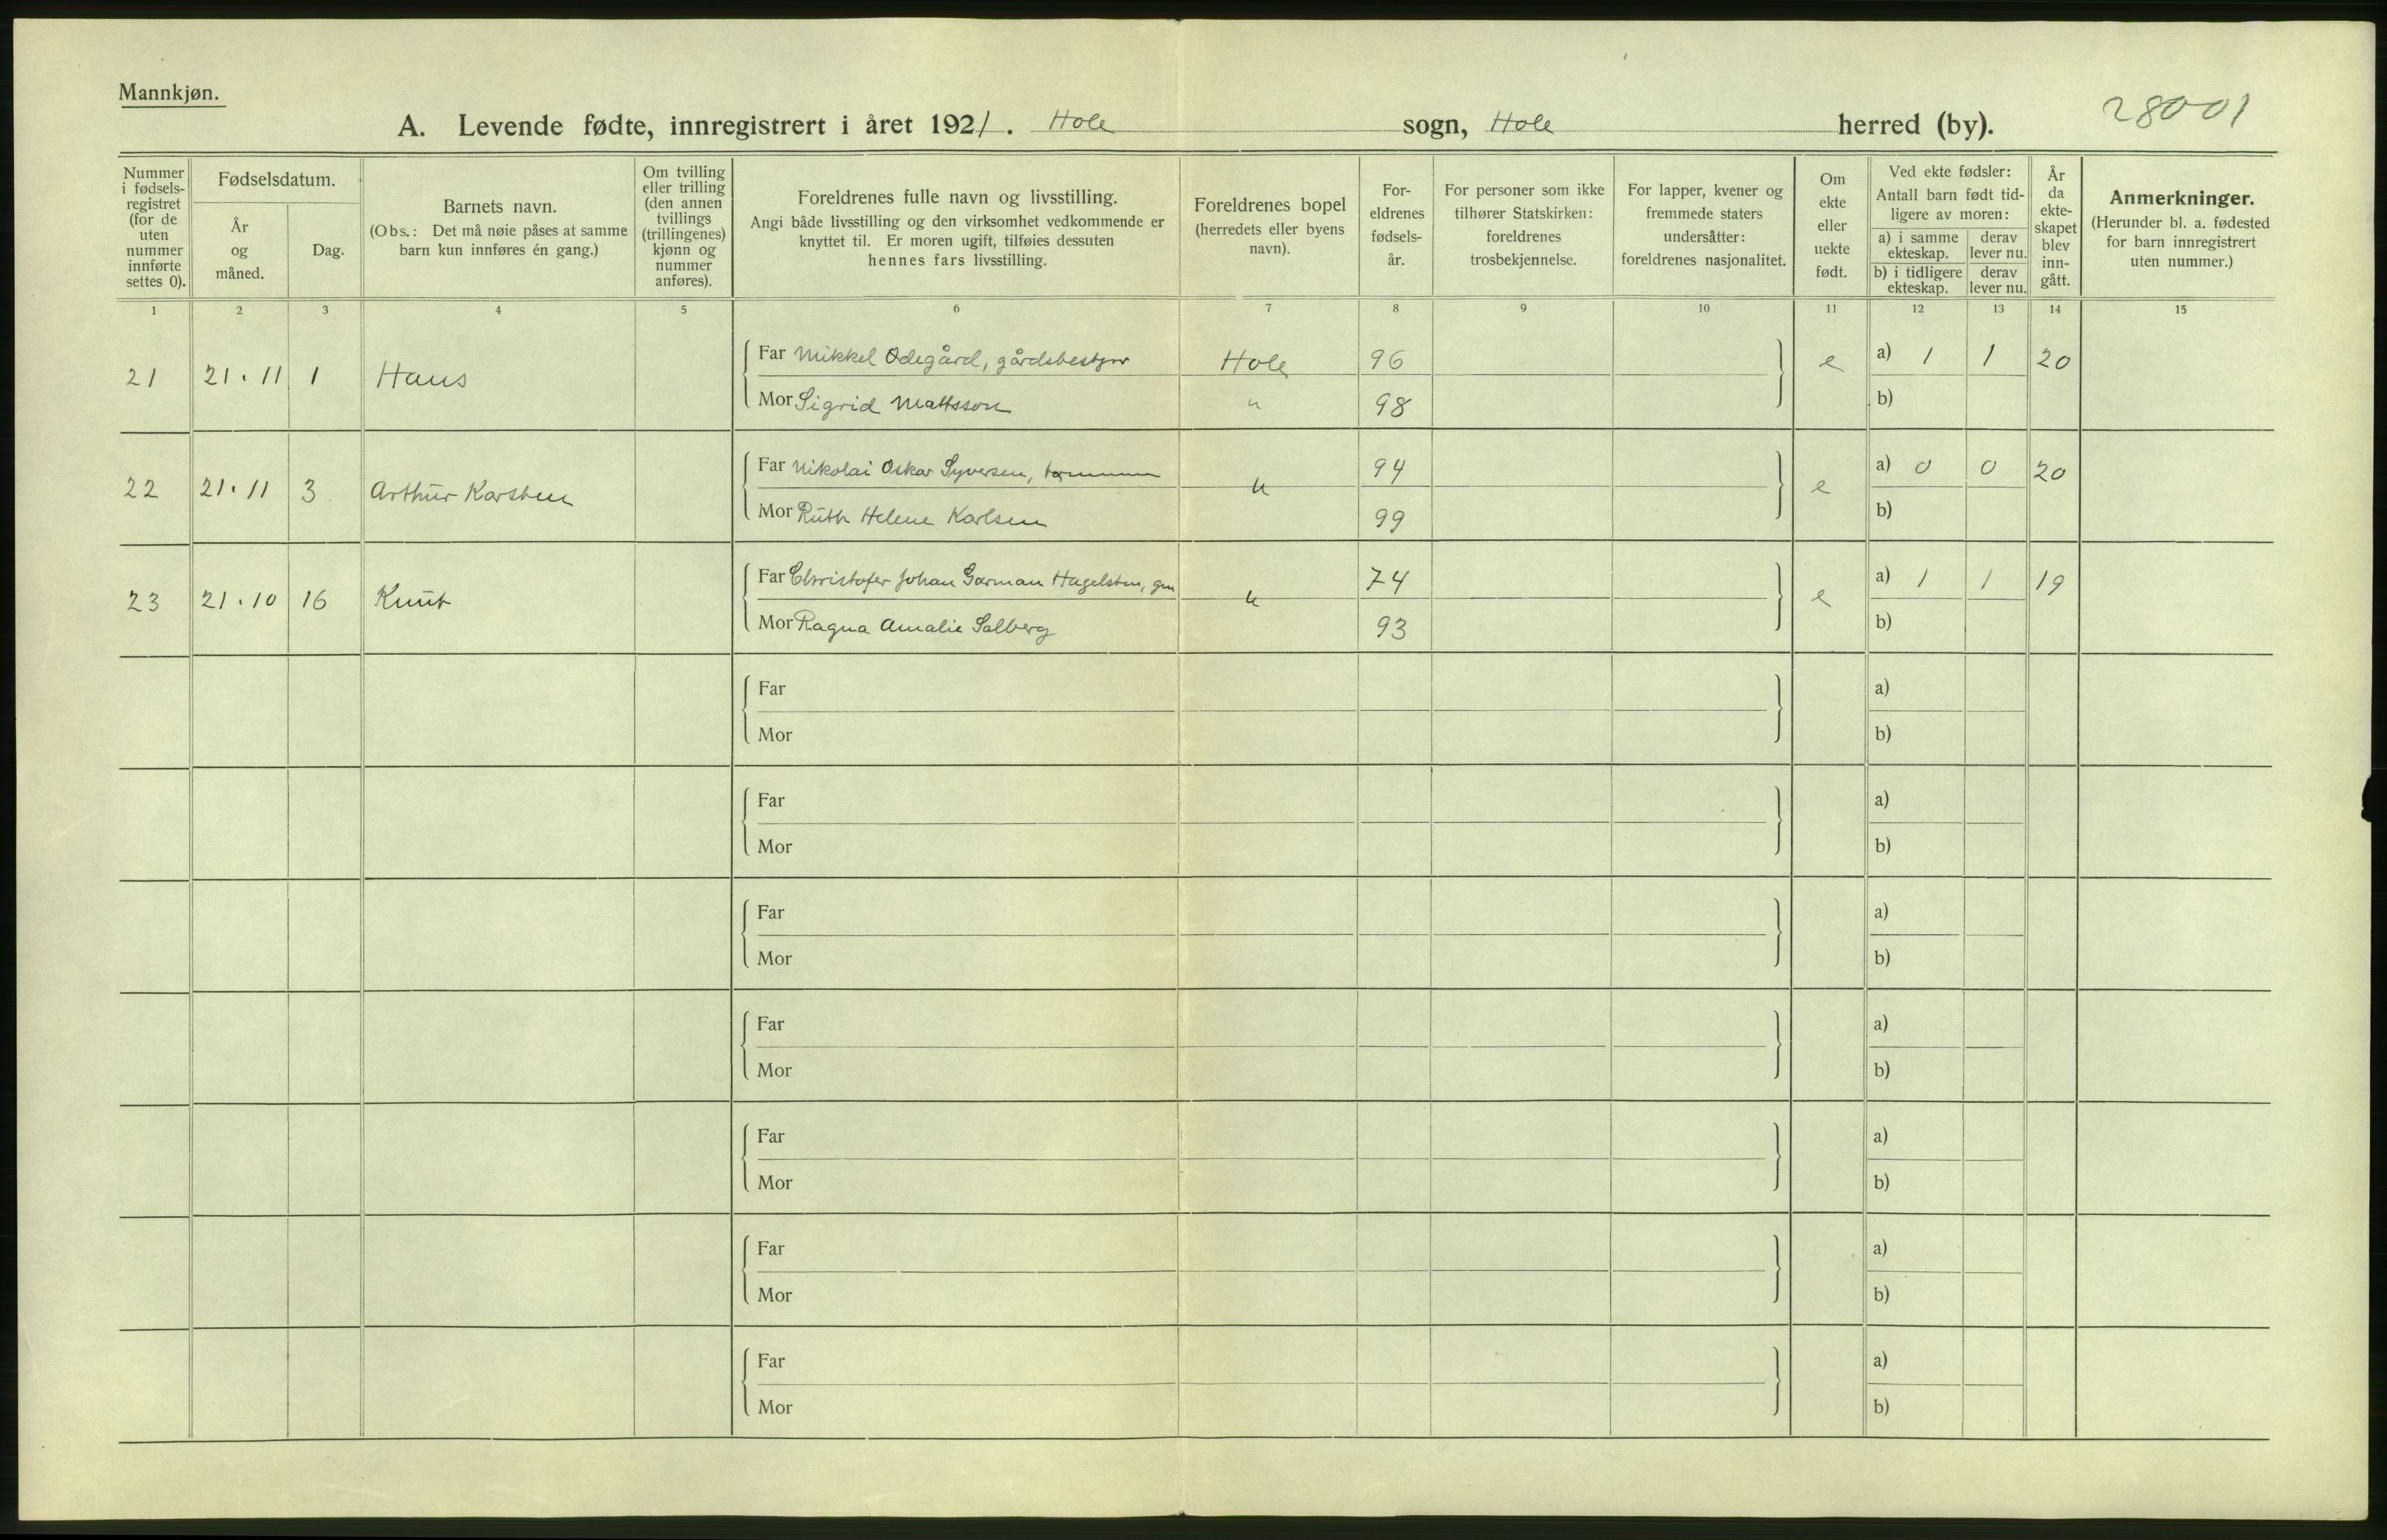 Mannkjøn.
A. Levende fødte, innregistrert i året 1921. Hole sogn, Hole herred (by). 28001
Nummer i fødsels-registret (for de uten nummer innførte settes 0).
Fødselsdatum.
År og måned.
Dag.
Barnets navn.
(Obs.: Det må nøie påses at samme barn kun innføres én gang.)
Om tvilling eller trilling (den annen tvillings (trillingenes) kjønn og nummer anføres).
Foreldrenes fulle navn og livsstilling.
Angi både livsstilling og den virksomhet vedkommende er knyttet til. Er moren ugift, tilføies dessuten hennes fars livsstilling.
Foreldrenes bopel (herredets eller byens navn).
For-eldrenes fødsels-år.
For personer som ikke tilhører Statskirken: foreldrenes trosbekjennelse.
For lapper, kvener og fremmede staters undersåtter: foreldrenes nasjonalitet.
Om ekte eller uekte født.
Ved ekte fødsler:
Antall barn født tid-ligere av moren:
a) i samme ekteskap.
derav lever nu.
b) i tidligere ekteskap.
derav lever nu.
År da ekte-skapet blev inn-gått.
Anmerkninger.
(Herunder bl. a. fødested for barn innregistrert uten nummer.)
1 2 3 4 5 6 7 8 9 10 11 12 13 14 15
21 21.11 1 Hans Far Mikkel Ødegård, gårdsbestyr Hole 96 e a) 1 1 20
Mor Sigrid Mattsson " 98 b)
22 21.11 3 Arthur Karsten Far Nikolai Oskar Syversen, " 94 e a) 0 0 20
Mor Ruth Helene Karlsen 99 b)
23 21.10 16 Knut Far Christofer Johan Garman Hagelsten, " 74 e a) 1 1 19
Mor Ragna Amalie Solberg 93 b)
Far a)
Mor b)
Far a)
Mor b)
Far a)
Mor b)
Far a)
Mor b)
Far a)
Mor b)
Far a)
Mor b)
Far a)
Mor b)